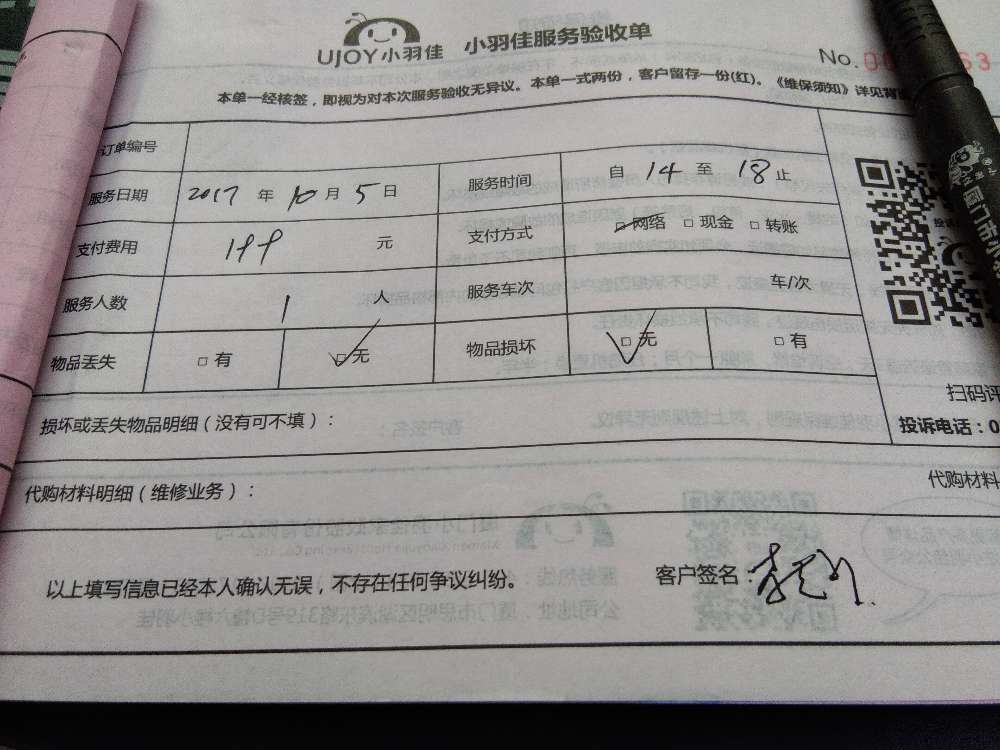 UJOY小羽佳 小羽佳服务验收单
No. 63
本单一经核签，即视为对本次服务验收无异议。本单一式两份，客户留存一份(红)。《维保须知》详见背
订单编号
服务日期 2017 年 10 月 5 日 服务时间 自 14 至 18 止
支付费用 199 元 支付方式 □网络 □现金 □转账
服务人数 1 人 服务车次 车/次
物品丢失 □有 □无 物品损坏 □无 □有
扫码评
损坏或丢失物品明细（没有可不填）：
投诉电话：0
代购材料明细（维修业务）：
代购材料
以上填写信息已经本人确认无误，不存在任何争议纠纷。 客户签名：
厦门市